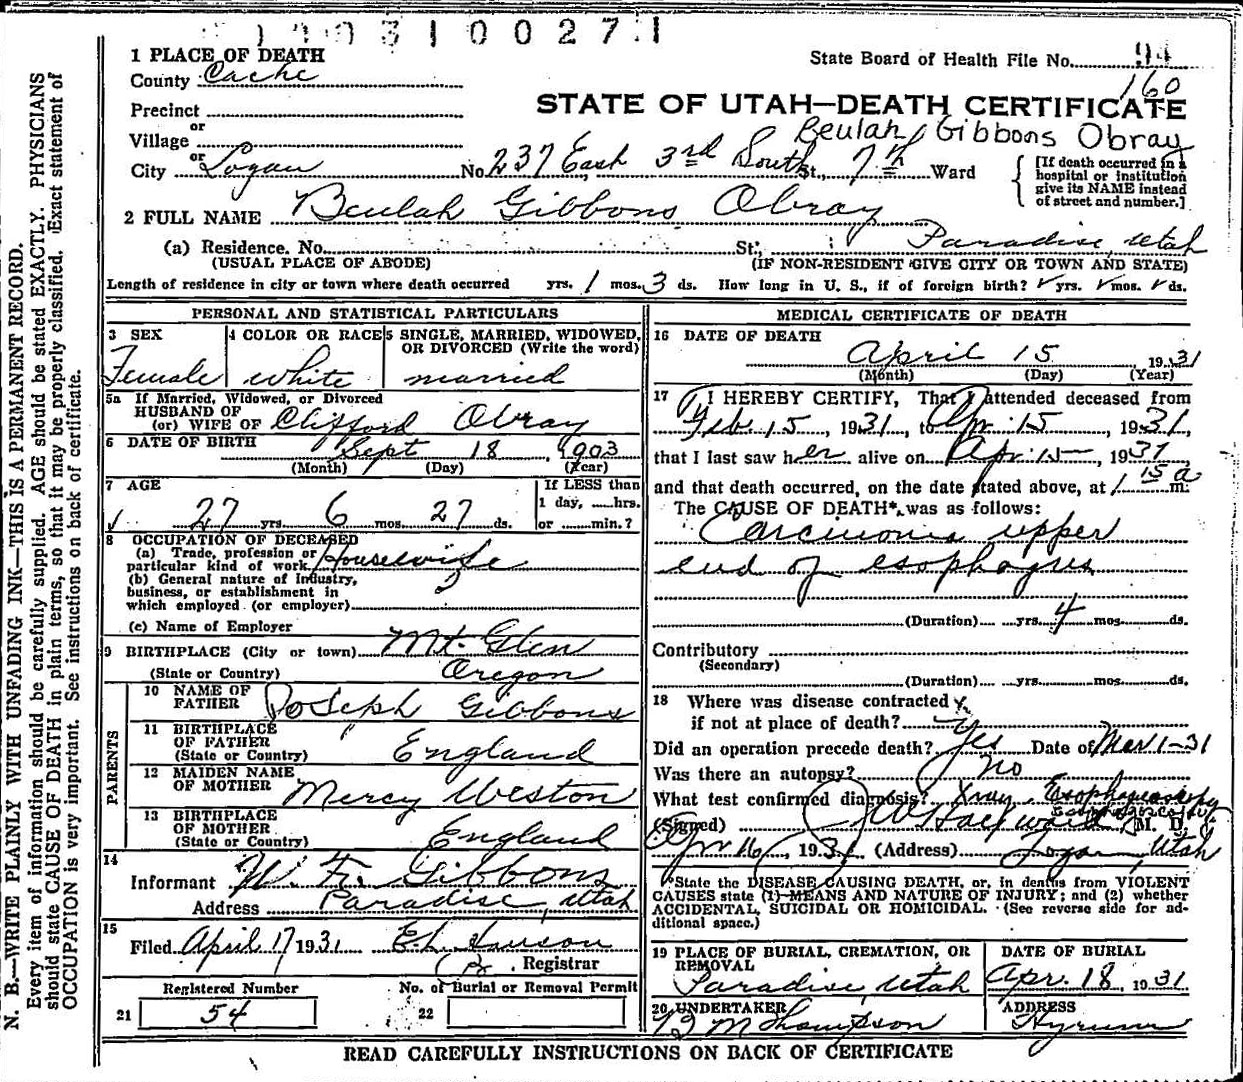 1 0 0 3 1 0 0 2 7 1
1 PLACE OF DEATH
State Board of Health File No. 94
County Cache
160
Precinct
STATE OF UTAH—DEATH CERTIFICATE
or
Village
Beulah Gibbons Obray
or
City Logan No. 237 East 3rd South St., 7th Ward
[If death occurred in a hospital or institution give its NAME instead of street and number.]
2 FULL NAME Beulah Gibbons Obray
(a) Residence. No. St., Paradise, Utah
(USUAL PLACE OF ABODE) (IF NON-RESIDENT GIVE CITY OR TOWN AND STATE)
Length of residence in city or town where death occurred yrs. 1 mos. 3 ds. How long in U. S., if of foreign birth? yrs. mos. ds.
PERSONAL AND STATISTICAL PARTICULARS
3 SEX
Female
4 COLOR OR RACE
white
5 SINGLE, MARRIED, WIDOWED,
OR DIVORCED (Write the word)
married
5a If Married, Widowed, or Divorced
HUSBAND OF
(or) WIFE OF Clifford Obray
6 DATE OF BIRTH Sept 18, 1903
(Month) (Day) (Year)
7 AGE
27 yrs. 6 mos. 27 ds.
If LESS than
1 day, hrs.
or min.?
8 OCCUPATION OF DECEASED
(a) Trade, profession or
particular kind of work Housewife
(b) General nature of Industry,
business, or establishment in
which employed (or employer)
(c) Name of Employer
9 BIRTHPLACE (City or town) Mt. Glen
(State or Country) Oregon
PARENTS
10 NAME OF
FATHER Joseph Gibbons
11 BIRTHPLACE
OF FATHER England
(State or Country)
12 MAIDEN NAME
OF MOTHER Mercy Weston
13 BIRTHPLACE
OF MOTHER England
(State or Country)
14
Informant W. F. Gibbons
Address Paradise, Utah
15
Filed April 17 1931 E. L. Hanson
Registrar
Registered Number No. of Burial or Removal Permit
21 54 22
MEDICAL CERTIFICATE OF DEATH
16 DATE OF DEATH
April 15 1931
(Month) (Day) (Year)
17 I HEREBY CERTIFY, That I attended deceased from
Feb. 15, 1931, to Apr. 15, 1931,
that I last saw her alive on Apr. 15, 1931
and that death occurred, on the date stated above, at 1 15 a m.
The CAUSE OF DEATH* was as follows:
Carcinoma upper
end of esophagus
(Duration) yrs. 4 mos. ds.
Contributory
(Secondary)
(Duration) yrs. mos. ds.
18 Where was disease contracted
if not at place of death?
Did an operation precede death? Yes Date of Mar 1-31
Was there an autopsy? No
What test confirmed diagnosis? Xray, Esophagoscopy
Esophagoscopy
(Signed) J W Hayward M. D.
Apr 16, 1931 (Address) Logan, Utah
*State the DISEASE CAUSING DEATH, or, in deaths from VIOLENT
CAUSES state (1) MEANS AND NATURE OF INJURY; and (2) whether
ACCIDENTAL, SUICIDAL OR HOMICIDAL. (See reverse side for ad-
ditional space.)
19 PLACE OF BURIAL, CREMATION, OR
REMOVAL
Paradise, Utah
DATE OF BURIAL
Apr. 18, 1931
20 UNDERTAKER
B M Thompson
ADDRESS
Hyrum
READ CAREFULLY INSTRUCTIONS ON BACK OF CERTIFICATE
N. B.—WRITE PLAINLY WITH UNFADING INK—THIS IS A PERMANENT RECORD.
Every item of information should be carefully supplied. AGE should be stated EXACTLY. PHYSICIANS
should state CAUSE OF DEATH in plain terms, so that it may be properly classified. (Exact statement of
OCCUPATION is very important. See instructions on back of certificate.